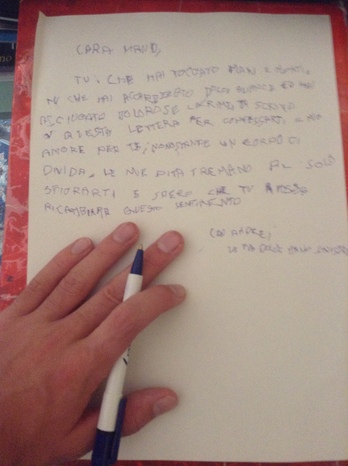 CARA MANO,
TU, CHE HAI TOCCATO
TU CHE HAI
ASCIUGATO DOLOROSE LACRIME, TI SCRIVO
QUESTA LETTERA PER CONFESSARTI IL MIO
AMORE PER TE, NONOSTANTE UN CORPO CI
DIVIDA, LE MIE DITA TREMANO AL SOLO
SFIORARTI E SPERO CHE TU POSSA
RICAMBIARE QUESTO SENTIMENTO
CON AMORE,
LA TUA